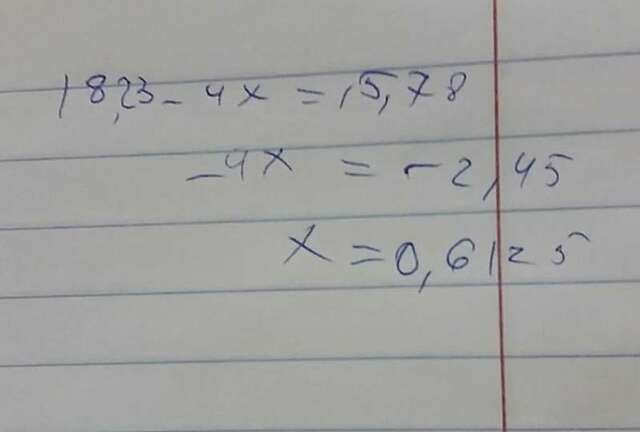 18,23 - 4x = 15,78
-4x = -2,45
x = 0,6125